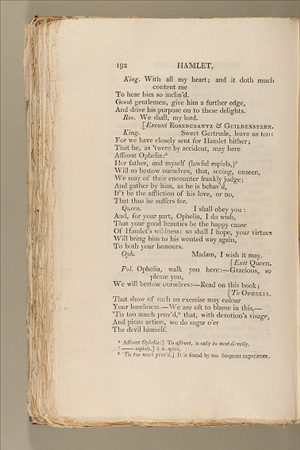 192 HAMLET,
King. With all my heart; and it doth much
content me
To hear him so inclin'd.
Good gentlemen, give him a further edge,
And drive his purpose on to these delights.
Ros. We shall, my lord.
[Exeunt ROSENCRANTZ & GUILDENSTERN.
King. Sweet Gertrude, leave us too:
For we have closely sent for Hamlet hither;
That he, as 'twere by accident, may here
Affront Ophelia:
Her father, and myself (lawful espials,)
Will so bestow ourselves, that, seeing, unseen,
We may of their encounter frankly judge;
And gather by him, as he is behav'd,
If't be the affliction of his love, or no,
That thus he suffers for.
Queen. I shall obey you:
And, for your part, Ophelia, I do wish,
That your good beauties be the happy cause
Of Hamlet's wildness: so shall I hope, your virtues
Will bring him to his wonted way again,
To both your honours.
Oph. Madam, I wish it may.
[Exit Queen.
Pol. Ophelia, walk you here:—Gracious, so
please you,
We will bestow ourselves:—Read on this book;
[To OPHELIA.
That show of such an exercise may colour
Your loneliness.—We are oft to blame in this,—
'Tis too much prov'd, that, with devotion's visage,
And pious action, we do sugar o'er
The devil himself.
Affront Ophelia:] To affront, is only to meet directly.
—— espials,] i. e. spies.
'Tis too much prov'd,] It is found by too frequent experience.